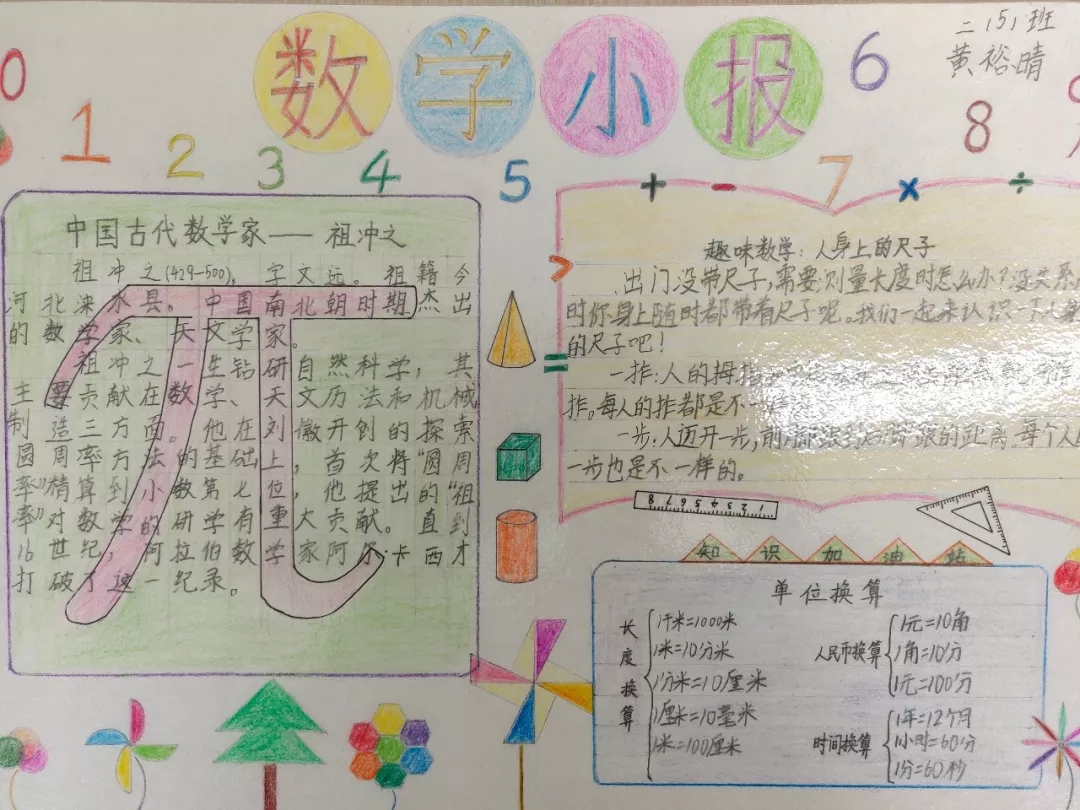 数学小报
二(5)班
黄裕晴
0 1 2 3 4 5 6 7 8
+ - × ÷
>
=
中国古代数学家——祖冲之
祖冲之(429-500),字文远。祖籍今
河北涞水县。中国南北朝时期杰出
的数学家、天文学家。
祖冲之一生钻研自然科学,其
主要贡献在数学、天文历法和机械
制造三方面。他在刘徽开创的探索
圆周率方法的基础上,首次将“圆周
率”精算到小数第七位,他提出的“祖
率”对数学的研学有重大贡献。直到
16世纪,阿拉伯数学家阿尔·卡西才
打破了这一纪录。
趣味数学:人身上的尺子
出门没带尺子,需要测量长度时怎么办?没关系,
时你身上随时都带着尺子呢。我们一起来认识一下人身
的尺子吧!
一拃:人的拇指
拃。每人的拃都是不一
一步:人迈开一步,前脚 的距离,每个人的
一步也是不一样的。
1 2 3 4 5 6 7 8
知识加油站
单位换算
长度换算
1千米=1000米
1米=10分米
1分米=10厘米
1厘米=10毫米
1米=100厘米
人民币换算
1元=10角
1角=10分
1元=100分
时间换算
1年=12个月
1小时=60分
1分=60秒